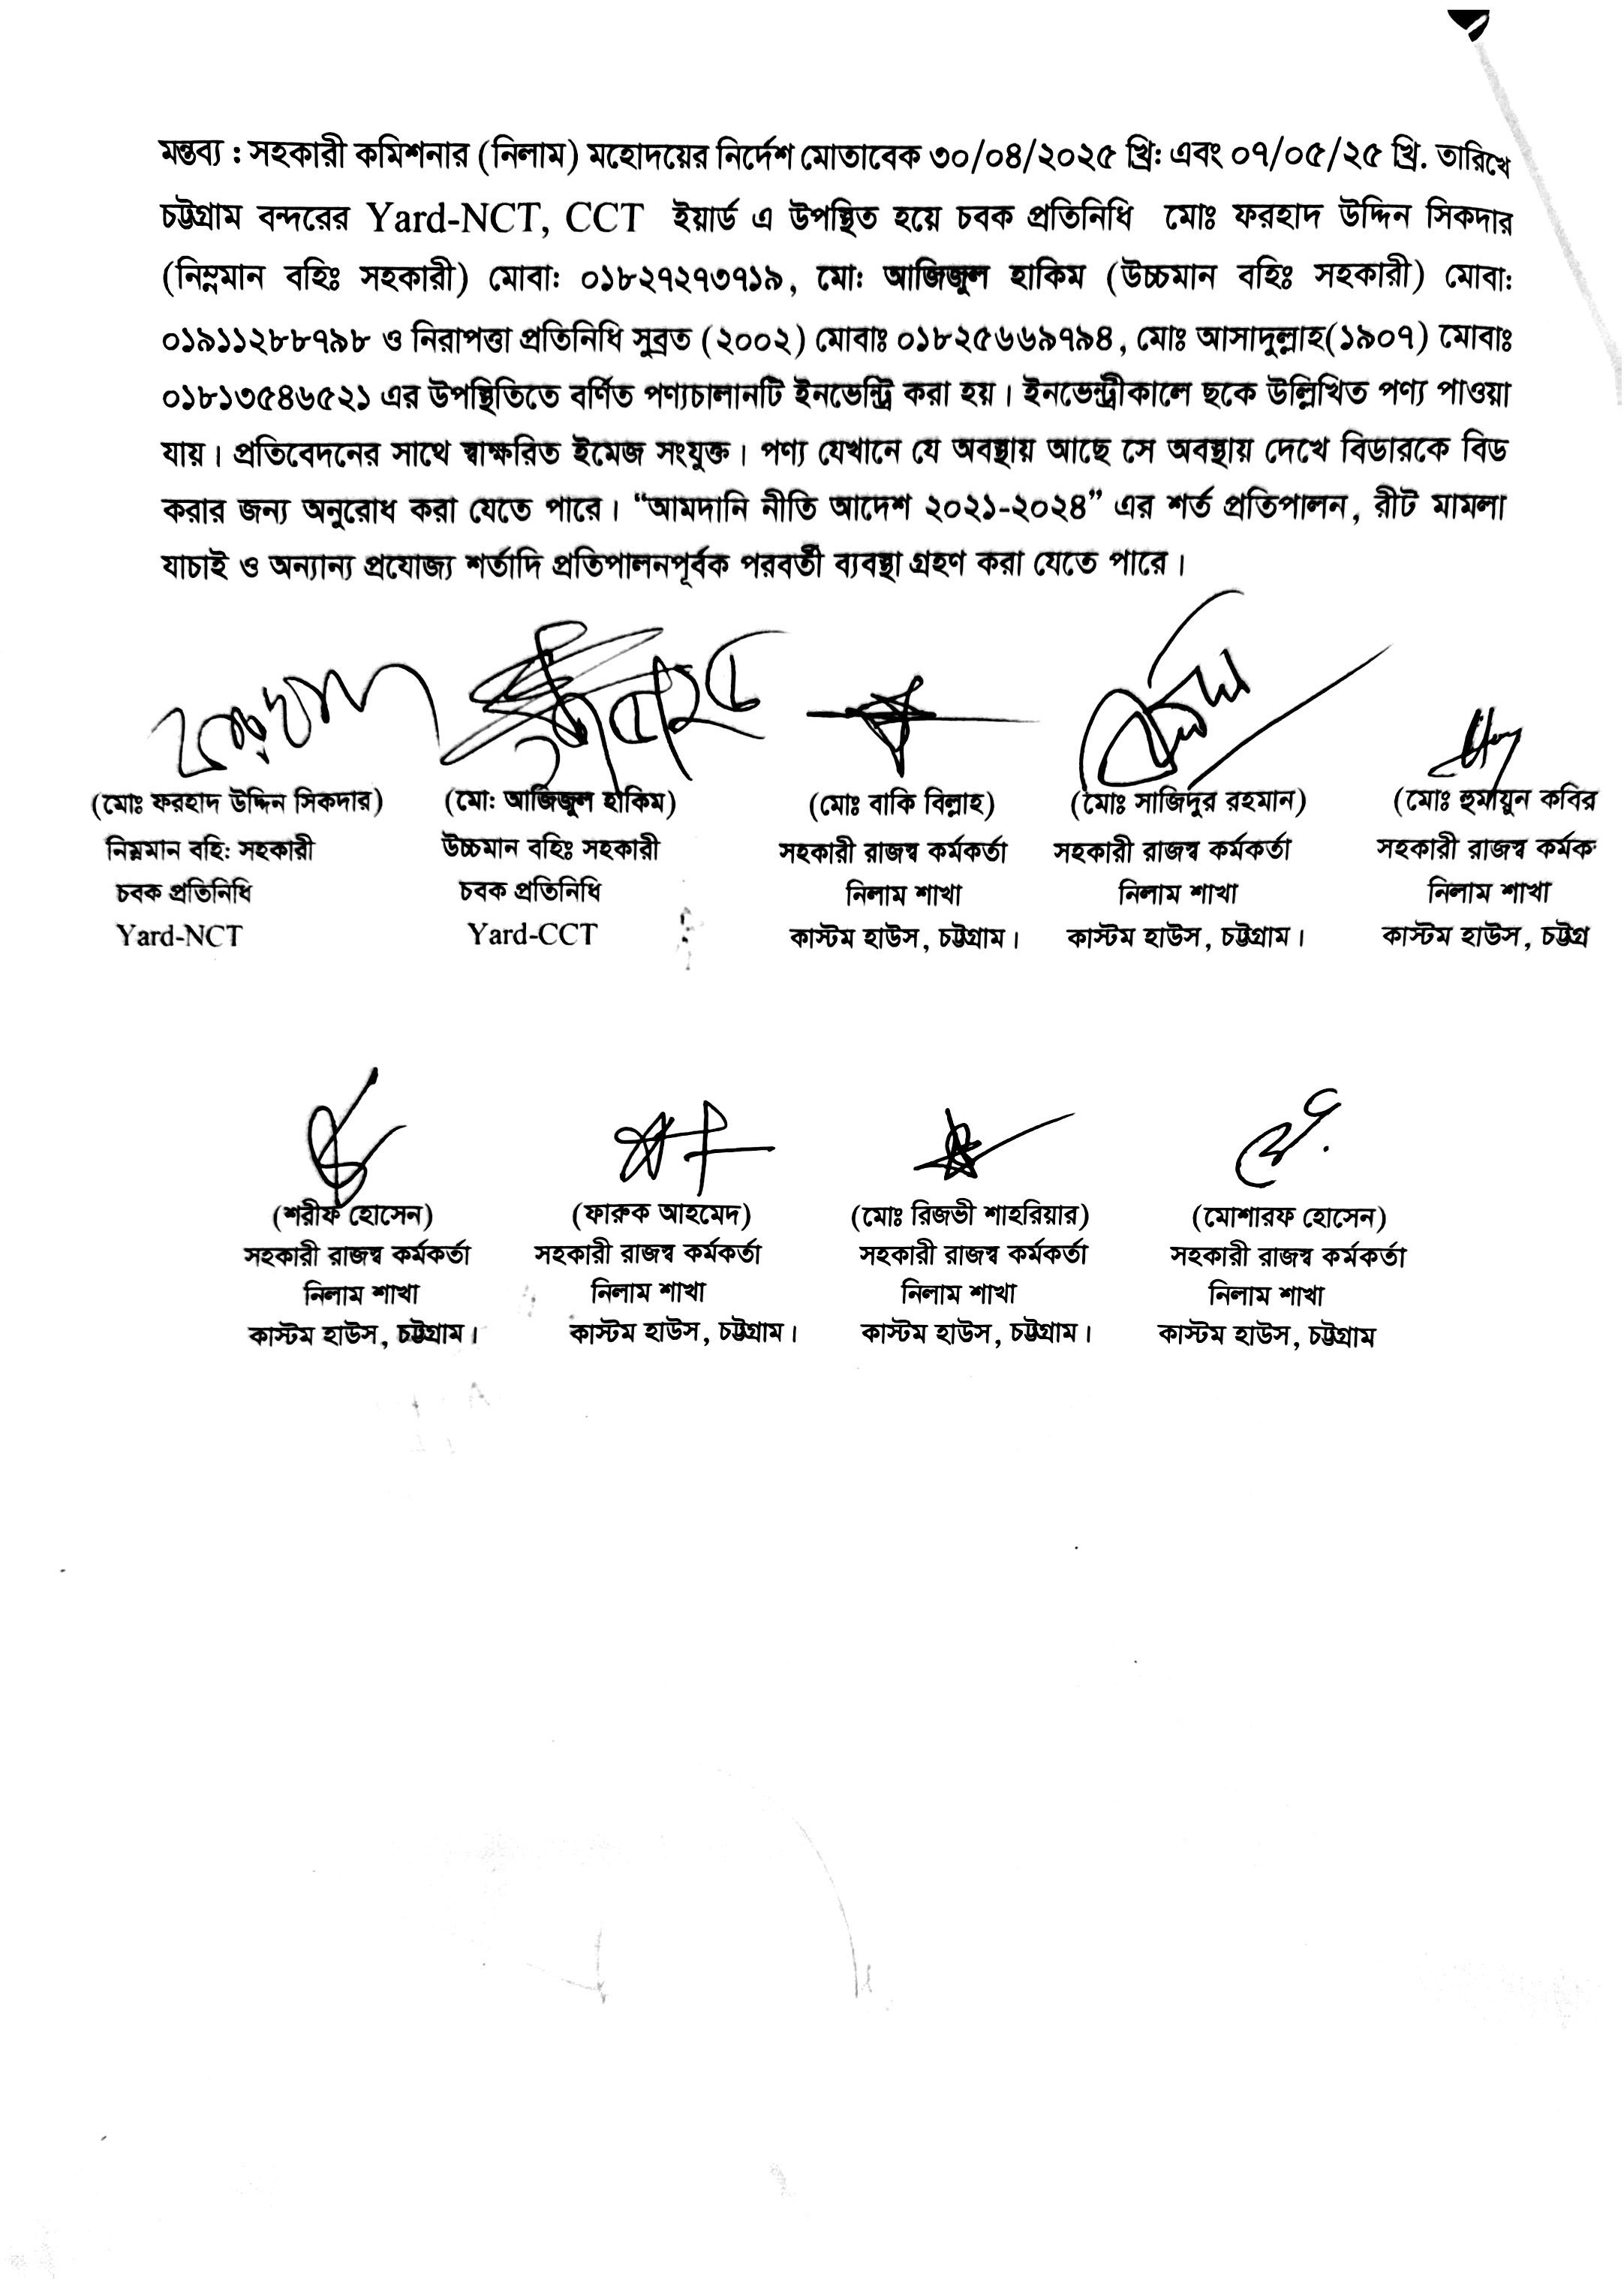 মন্তব্য : সহকারী কমিশনার (নিলাম) মহোদয়ের নির্দেশ মোতাবেক ৩০/০৪/২০২৫ খ্রি: এবং ০৭/০৫/২৫ খ্রি. তারিখে
চট্টগ্রাম বন্দরের Yard-NCT, CCT ইয়ার্ড এ উপস্থিত হয়ে চবক প্রতিনিধি মোঃ ফরহাদ উদ্দিন সিকদার
(নিম্নমান বহিঃ সহকারী) মোবা: ০১৮২৭২৭৩৭১৯, মো: আজিজুল হাকিম (উচ্চমান বহিঃ সহকারী) মোবা:
০১৯১১২৮৮৭৯৮ ও নিরাপত্তা প্রতিনিধি সুব্রত (২০০২) মোবাঃ ০১৮২৫৬৬৯৭৯৪, মোঃ আসাদুল্লাহ(১৯০৭) মোবাঃ
০১৮১৩৫৪৬৫২১ এর উপস্থিতিতে বর্ণিত পণ্যচালানটি ইনভেন্ট্রি করা হয়। ইনভেন্ট্রীকালে ছকে উল্লিখিত পণ্য পাওয়া
যায়। প্রতিবেদনের সাথে স্বাক্ষরিত ইমেজ সংযুক্ত। পণ্য যেখানে যে অবস্থায় আছে সে অবস্থায় দেখে বিডারকে বিড
করার জন্য অনুরোধ করা যেতে পারে। “আমদানি নীতি আদেশ ২০২১-২০২৪” এর শর্ত প্রতিপালন, রীট মামলা
যাচাই ও অন্যান্য প্রযোজ্য শর্তাদি প্রতিপালনপূর্বক পরবর্তী ব্যবস্থা গ্রহণ করা যেতে পারে।
(মোঃ ফরহাদ উদ্দিন সিকদার) (মো: আজিজুল হাকিম) (মোঃ বাকি বিল্লাহ) (মোঃ সাজিদুর রহমান) (মোঃ হুমায়ুন কবির
নিম্নমান বহি: সহকারী উচ্চমান বহিঃ সহকারী সহকারী রাজস্ব কর্মকর্তা সহকারী রাজস্ব কর্মকর্তা সহকারী রাজস্ব কর্মক
চবক প্রতিনিধি চবক প্রতিনিধি নিলাম শাখা নিলাম শাখা নিলাম শাখা
Yard-NCT Yard-CCT কাস্টম হাউস, চট্টগ্রাম। কাস্টম হাউস, চট্টগ্রাম। কাস্টম হাউস, চট্টগ্র
(শরীফ হোসেন) (ফারুক আহমেদ) (মোঃ রিজভী শাহরিয়ার) (মোশারফ হোসেন)
সহকারী রাজস্ব কর্মকর্তা সহকারী রাজস্ব কর্মকর্তা সহকারী রাজস্ব কর্মকর্তা সহকারী রাজস্ব কর্মকর্তা
নিলাম শাখা নিলাম শাখা নিলাম শাখা নিলাম শাখা
কাস্টম হাউস, চট্টগ্রাম। কাস্টম হাউস, চট্টগ্রাম। কাস্টম হাউস, চট্টগ্রাম। কাস্টম হাউস, চট্টগ্রাম